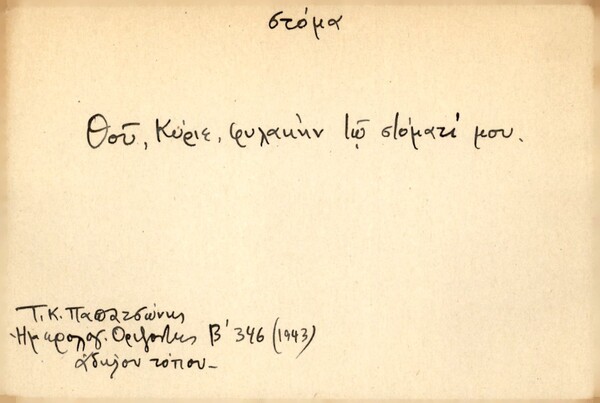 στόμα
Θοῦ, Κύριε, φυλακὴν τῷ στόματί μου.
Τ. Κ. Παπατσώνης
Ορίζοντες Β΄ 346 (1943)
ἀδήλου τόπου_